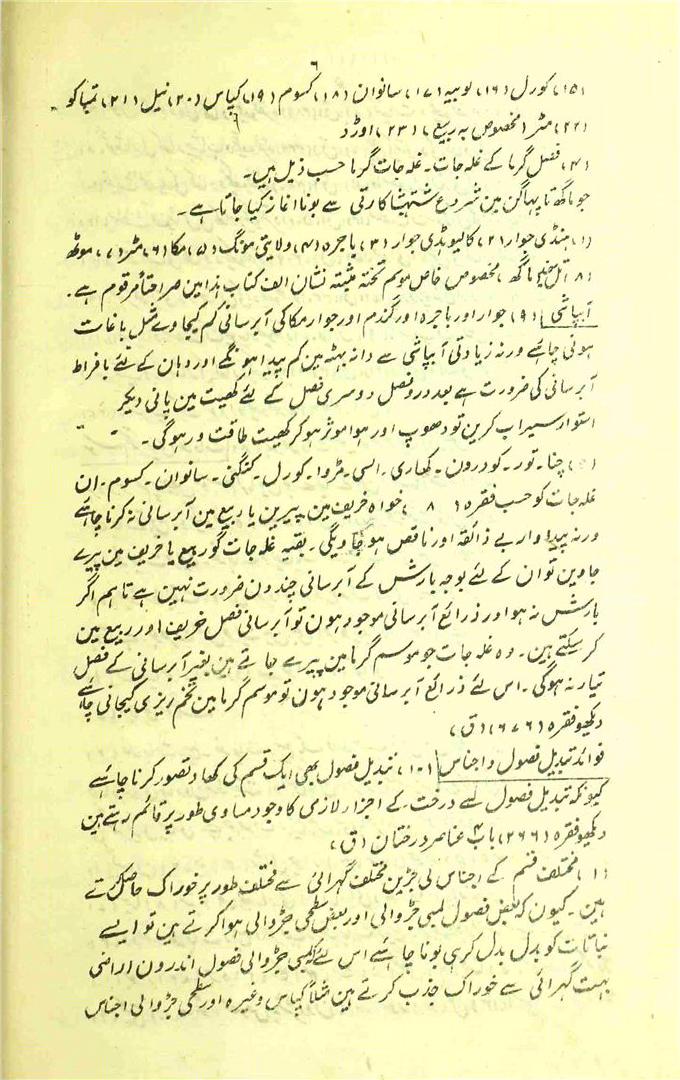 ۶
(۱۵) کورل (۱۶) لوبیہ (۱۷) سانوان (۱۸) کسوم (۱۹) کپاس (۲۰) نیل (۲۱) تمباکو
(۲۲) مٹر (مخصوص بہ ربیع) (۲۳) اوڑد
(۴) فصل گرما کے غلہ جات۔ غلہ جات گرما حسب ذیل ہیں۔
جو ماگھ تا پہاگن مین شروع کارتی سے بونا اغاز کیا جاتا ہے۔
(۱) ہنڈی جوار (۲) کالیونڈی جوار (۳) باجرہ (۴) ولایتی مونگ (۵) مکا (۶) مٹر (۷) موٹھ
(۸) تل ماگھ مخصوص خاص موسم تختہ مثبتہ نشان الف کتاب ہذا مین صراحتاً مرقوم ہے۔
آبپاشی (۹) جوار اور باجرہ اور گندم اور جوار مکا کی آبرسانی کم کیجاوے مثل باغات
ہونی چاہئے ورنہ زیادتی آبپاشی سے دانہ بہٹہ مین کم پیدا ہونگے اور دہان کے لئے بافراط
آبرسانی کی ضرورت ہے بعد درو فصل دوسری فصل کے لئے کھیت مین پانی دیکر
استوار سیراب کرین تو دھوپ اور ہوا موثر ہو کر کھیت طاقت ور ہوگی۔
چنا۔ تور۔ کودرون۔ کھاری۔ السی۔ مڑوا۔ کورل۔ کنگنی۔ سانوان۔ کسوم۔ ان
غلہ جات کو حسب فقرہ (۸) خواہ خریف مین پیرین یا ربیع مین آبرسانی نہ کرنا چاہئے
ورنہ پیداوار بے ذائقہ اور ناقص ہو جاویگی۔ بقیہ غلہ جات گو ربیع یا خریف مین پیرے
جاوین تو ان کے لئے بوجہ بارش کے آبرسانی چندون ضرورت نہین ہے تاہم اگر
بارش نہ ہو اور ذرائع آبرسانی موجود ہون تو آبرسانی فصل خریف اور ربیع مین
کرسکتے ہین۔ وہ غلہ جات جو موسم گرما مین پیرے جاتے ہین بغیر آبرسانی کے فصل
تیار نہ ہوگی۔ اس لئے ذرائع آبرسانی موجود ہون تو موسم گرما مین تخم ریزی کیجانی چاہئے
دیکھو فقرہ (۶۷۶) (ق)
فوائد تبدیل فصول و اجناس (۱۰) تبدیل فصول بھی ایک قسم کی کھاد تصور کرنا چاہئے
کیونکہ تبدیل فصول سے درخت کے اجزار لازمی کا وجود مساوی طور پر قائم رہتے ہین
دیکھو فقرہ (۲۶۶) باب ۴ عناصر درختان (ق)
(۱) مختلف قسم کے اجناس کی جڑین مختلف گہرائی سے مختلف طور پر خوراک حاصل کرتے
ہین۔ کیون کہ بعض فصول لمبی جڑ والی اور بعض سطحی جڑ والی ہوا کرتے ہین تو ایسے
نباتات کو بدل بدل کر ہی بونا چاہئے اس لئے کہ لمبی جڑ والی فصول اندرون اراضی
بہت گہرائی سے خوراک جذب کرتے ہین مثلاً کپاس وغیرہ اور سطحی جڑ والی اجناس